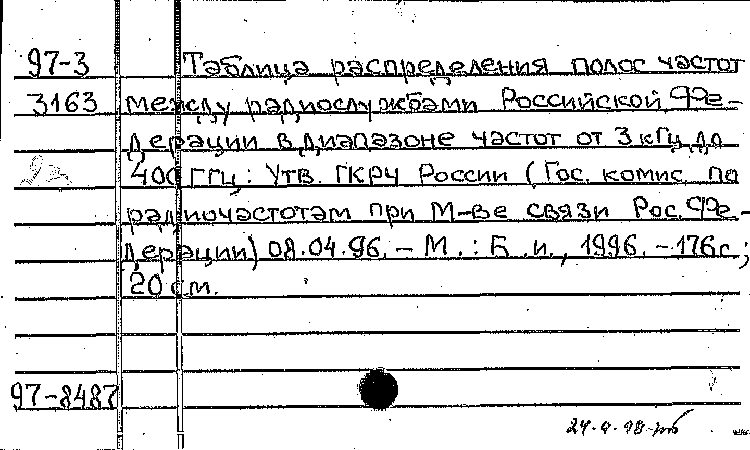 97-3 Таблица распределения полос частот
3163 между радиослужбами Российской Фе-
дерации в диапазоне частот от 3 кГц до
400 ГГц: Утв. ГКРЧ России (Гос. комис. по
радиочастотам при М-ве связи Рос. Фе-
дерации) 08.04.96. - М.: Б.и., 1996. - 176 с.;
20 см.
97-8487